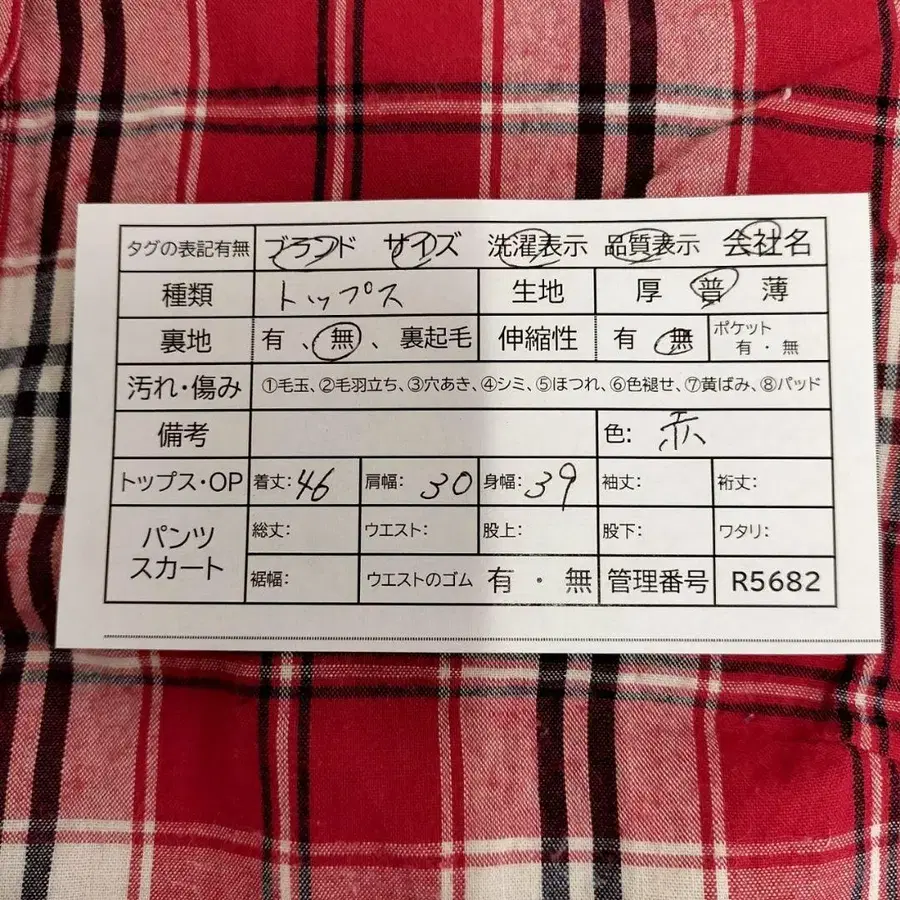 タグの表記有無 ブランド サイズ 洗濯表示 品質表示 会社名
種類 トップス 生地 厚 普 薄
裏地 有 、無 、裏起毛 伸縮性 有 無 ポケット 有・無
汚れ・傷み ①毛玉、②毛羽立ち、③穴あき、④シミ、⑤ほつれ、⑥色褪せ、⑦黄ばみ、⑧パッド
備考 色: 赤
トップス・OP 着丈:46 肩幅: 30 身幅:39 袖丈: 裄丈:
パンツ スカート 総丈: ウエスト: 股上: 股下: ワタリ:
裾幅: ウエストのゴム 有 ・ 無 管理番号 R5682